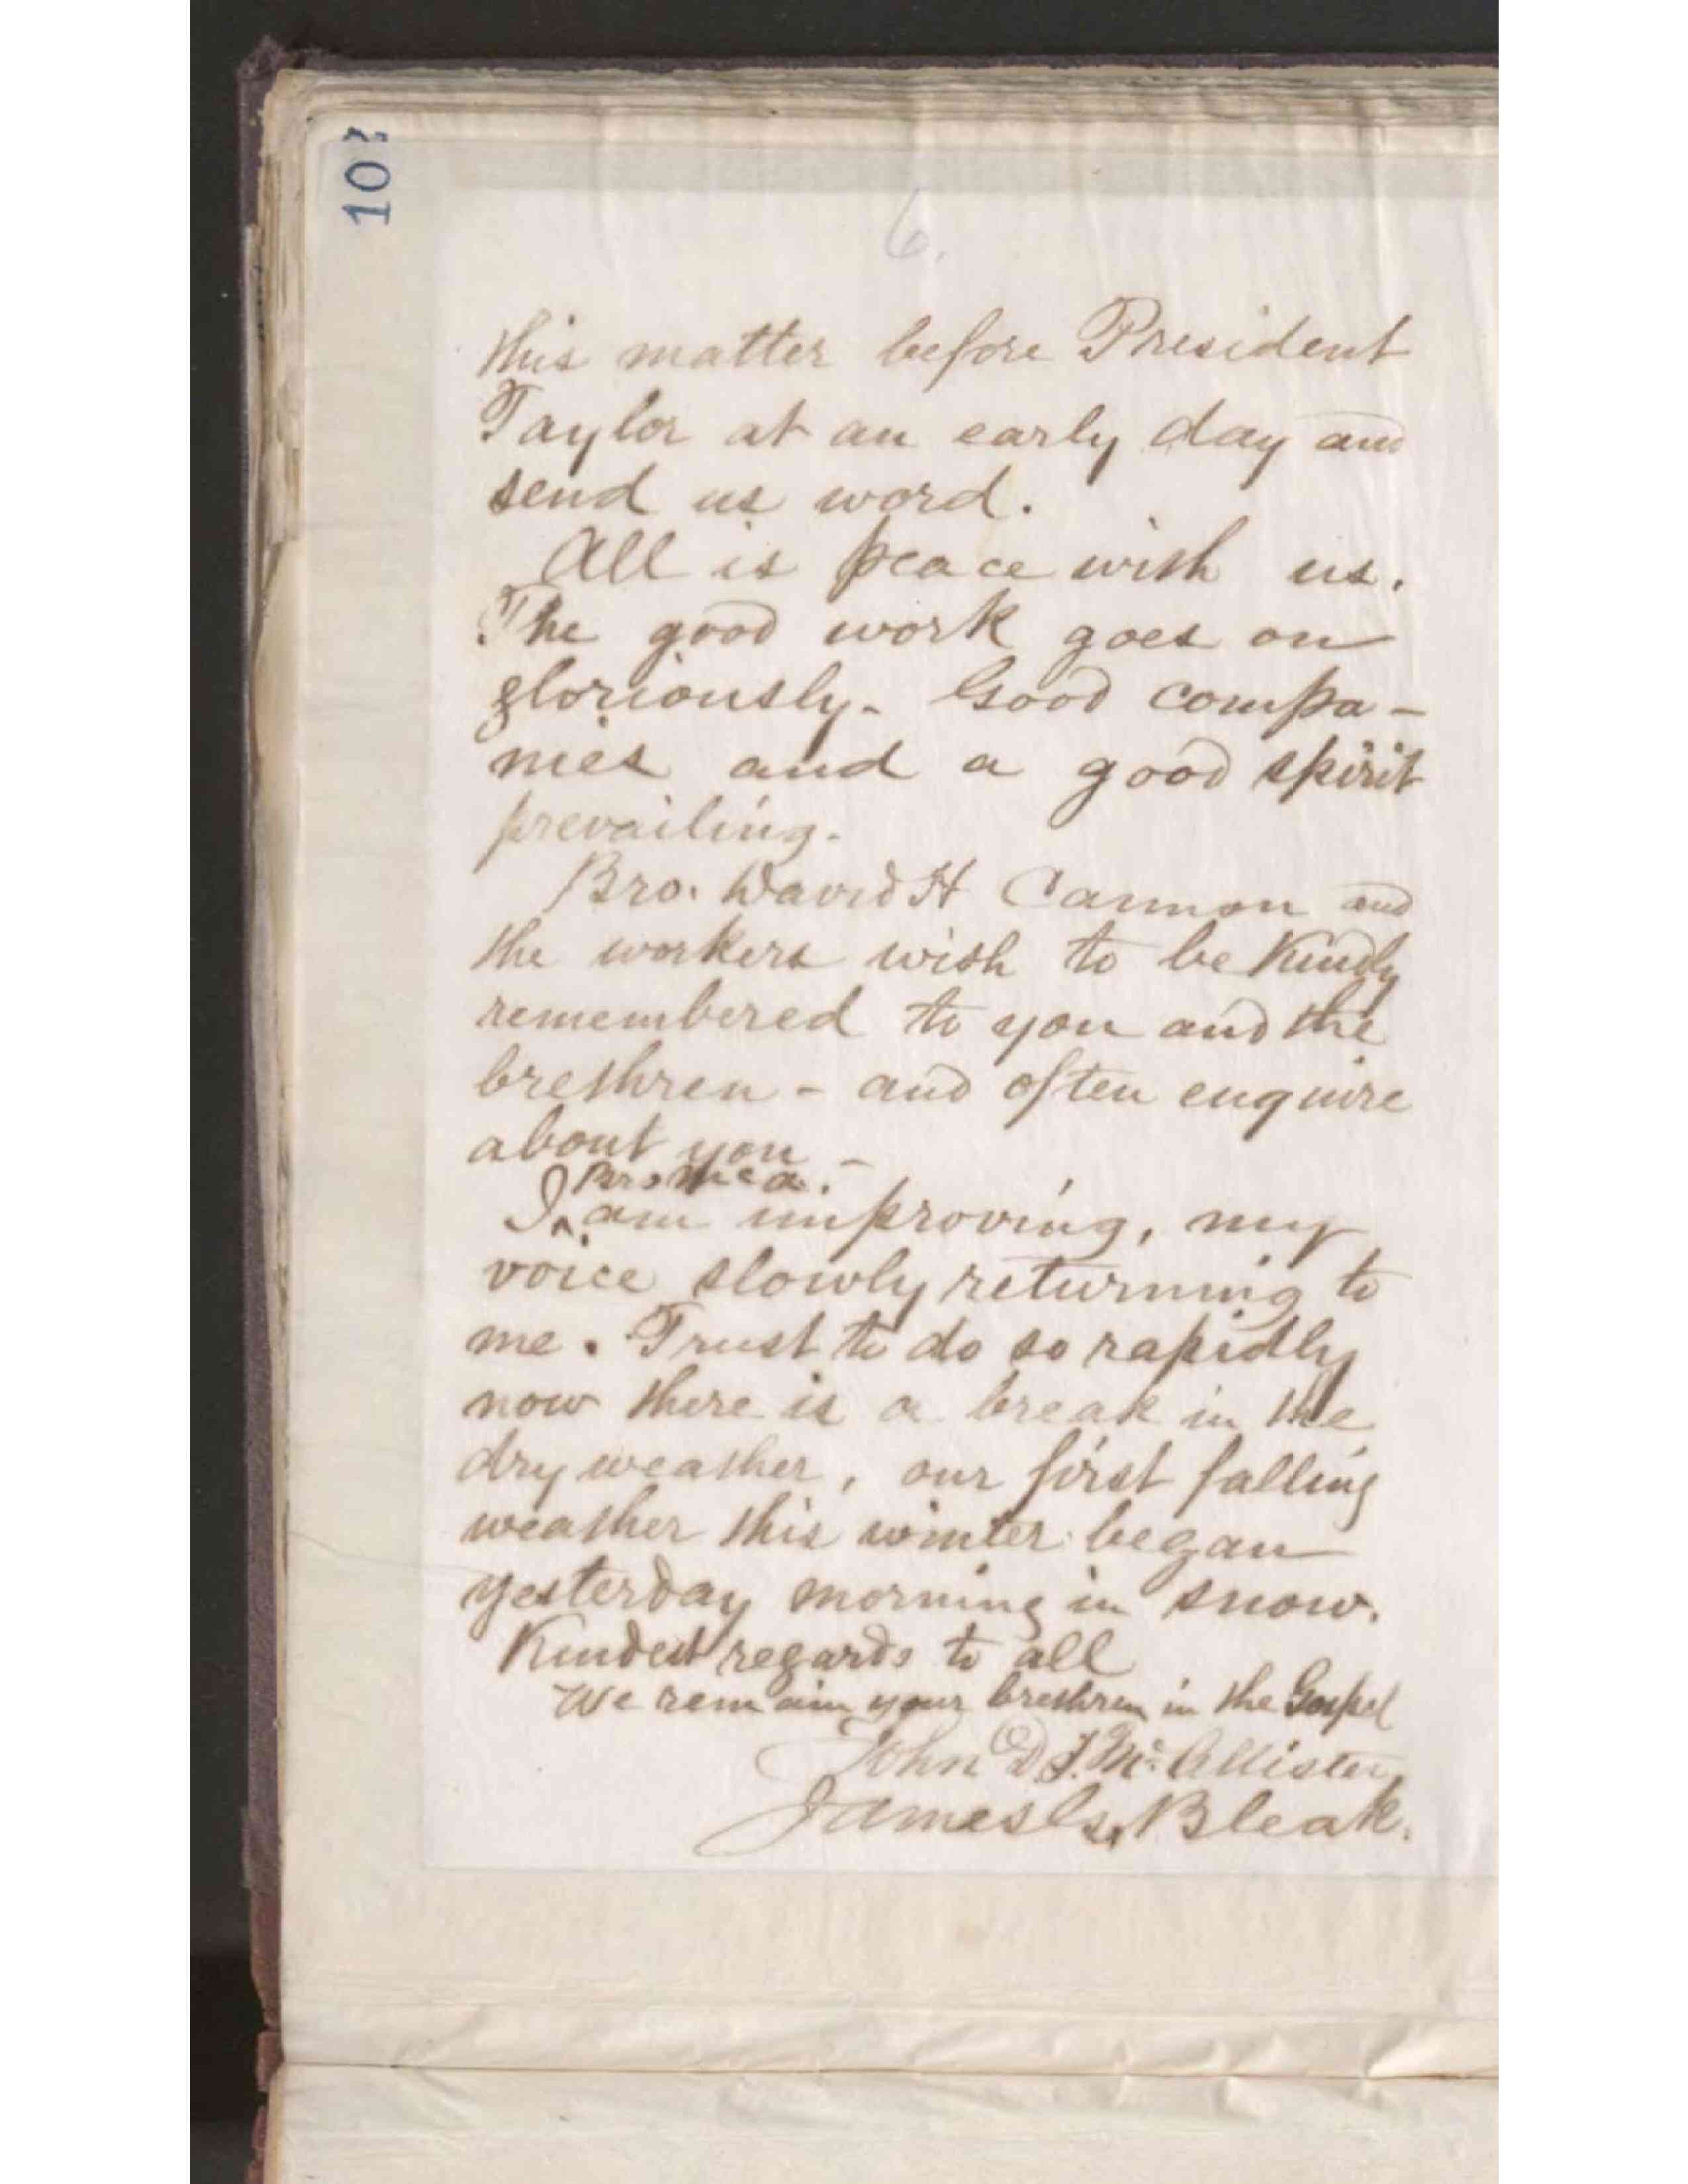 10
6.
this matter before President
Taylor at an early day and
send us word.
All is peace with us.
The good work goes on
gloriously. Good compa-
nies and a good spirit
prevailing.
Bro. David H Cannon and
the workers wish to be kindly
remembered to you and the
brethren - and often enquire
about you -
Bro McA.
I ^ am improving, my
voice slowly returning to
me. Trust to do so rapidly
now there is a break in the
dry weather, our first falling
weather this winter began
yesterday morning in snow.
Kindest regards to all
We remain your brethren in the Gospel
John D. T. McAllister
James G. Bleak.